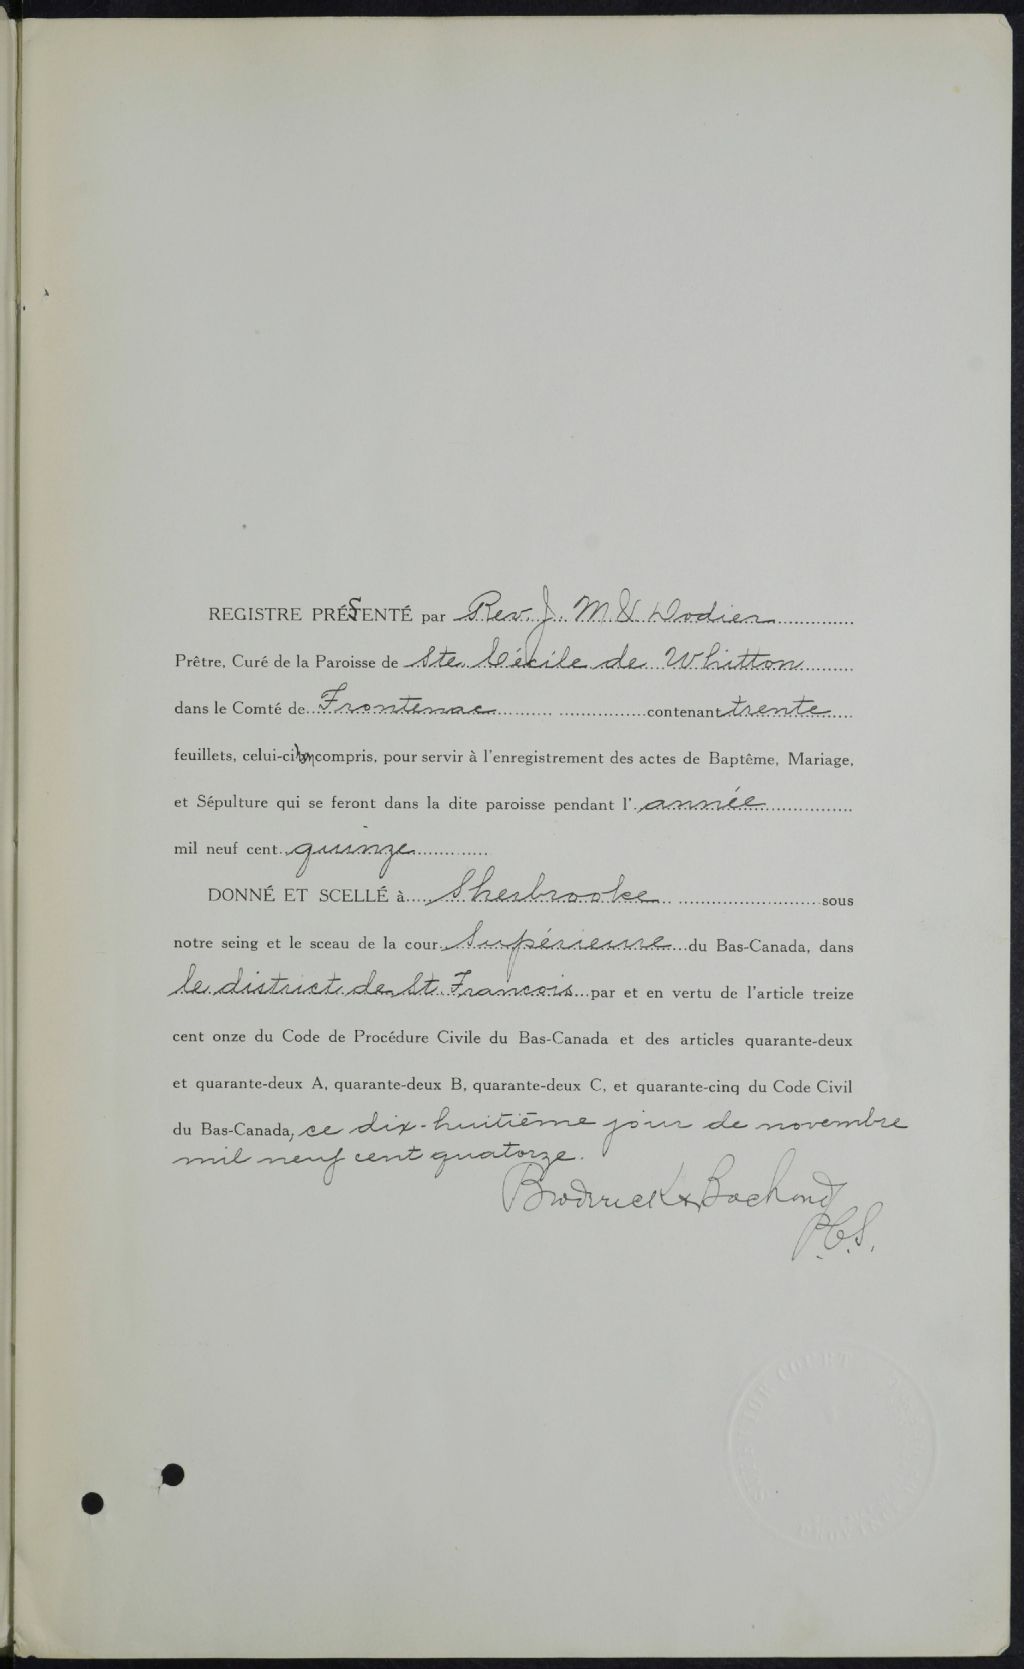 REGISTRE PRÉSENTÉ par Rev. J. M. Dodier
Prêtre, Curé de la Paroisse de Ste. Cécile de Whitton
dans le Comté de Frontenac contenant trente
feuillets, celui-ci compris, pour servir à l'enregistrement des actes de Baptême, Mariage,
et Sépulture qui se feront dans la dite paroisse pendant l' année
mil neuf cent quinze
DONNÉ ET SCELLÉ à Sherbrooke sous
notre seing et le sceau de la cour Supérieure du Bas-Canada, dans
le district de St. François par et en vertu de l'article treize
cent onze du Code de Procédure Civile du Bas-Canada et des articles quarante-deux
et quarante-deux A, quarante-deux B, quarante-deux C, et quarante-cinq du Code Civil
du Bas-Canada, ce dix-huitième jour de novembre
mil neuf cent quatorze.
Broderick & Bachand
P.C.S.
SUPERIOR COURT